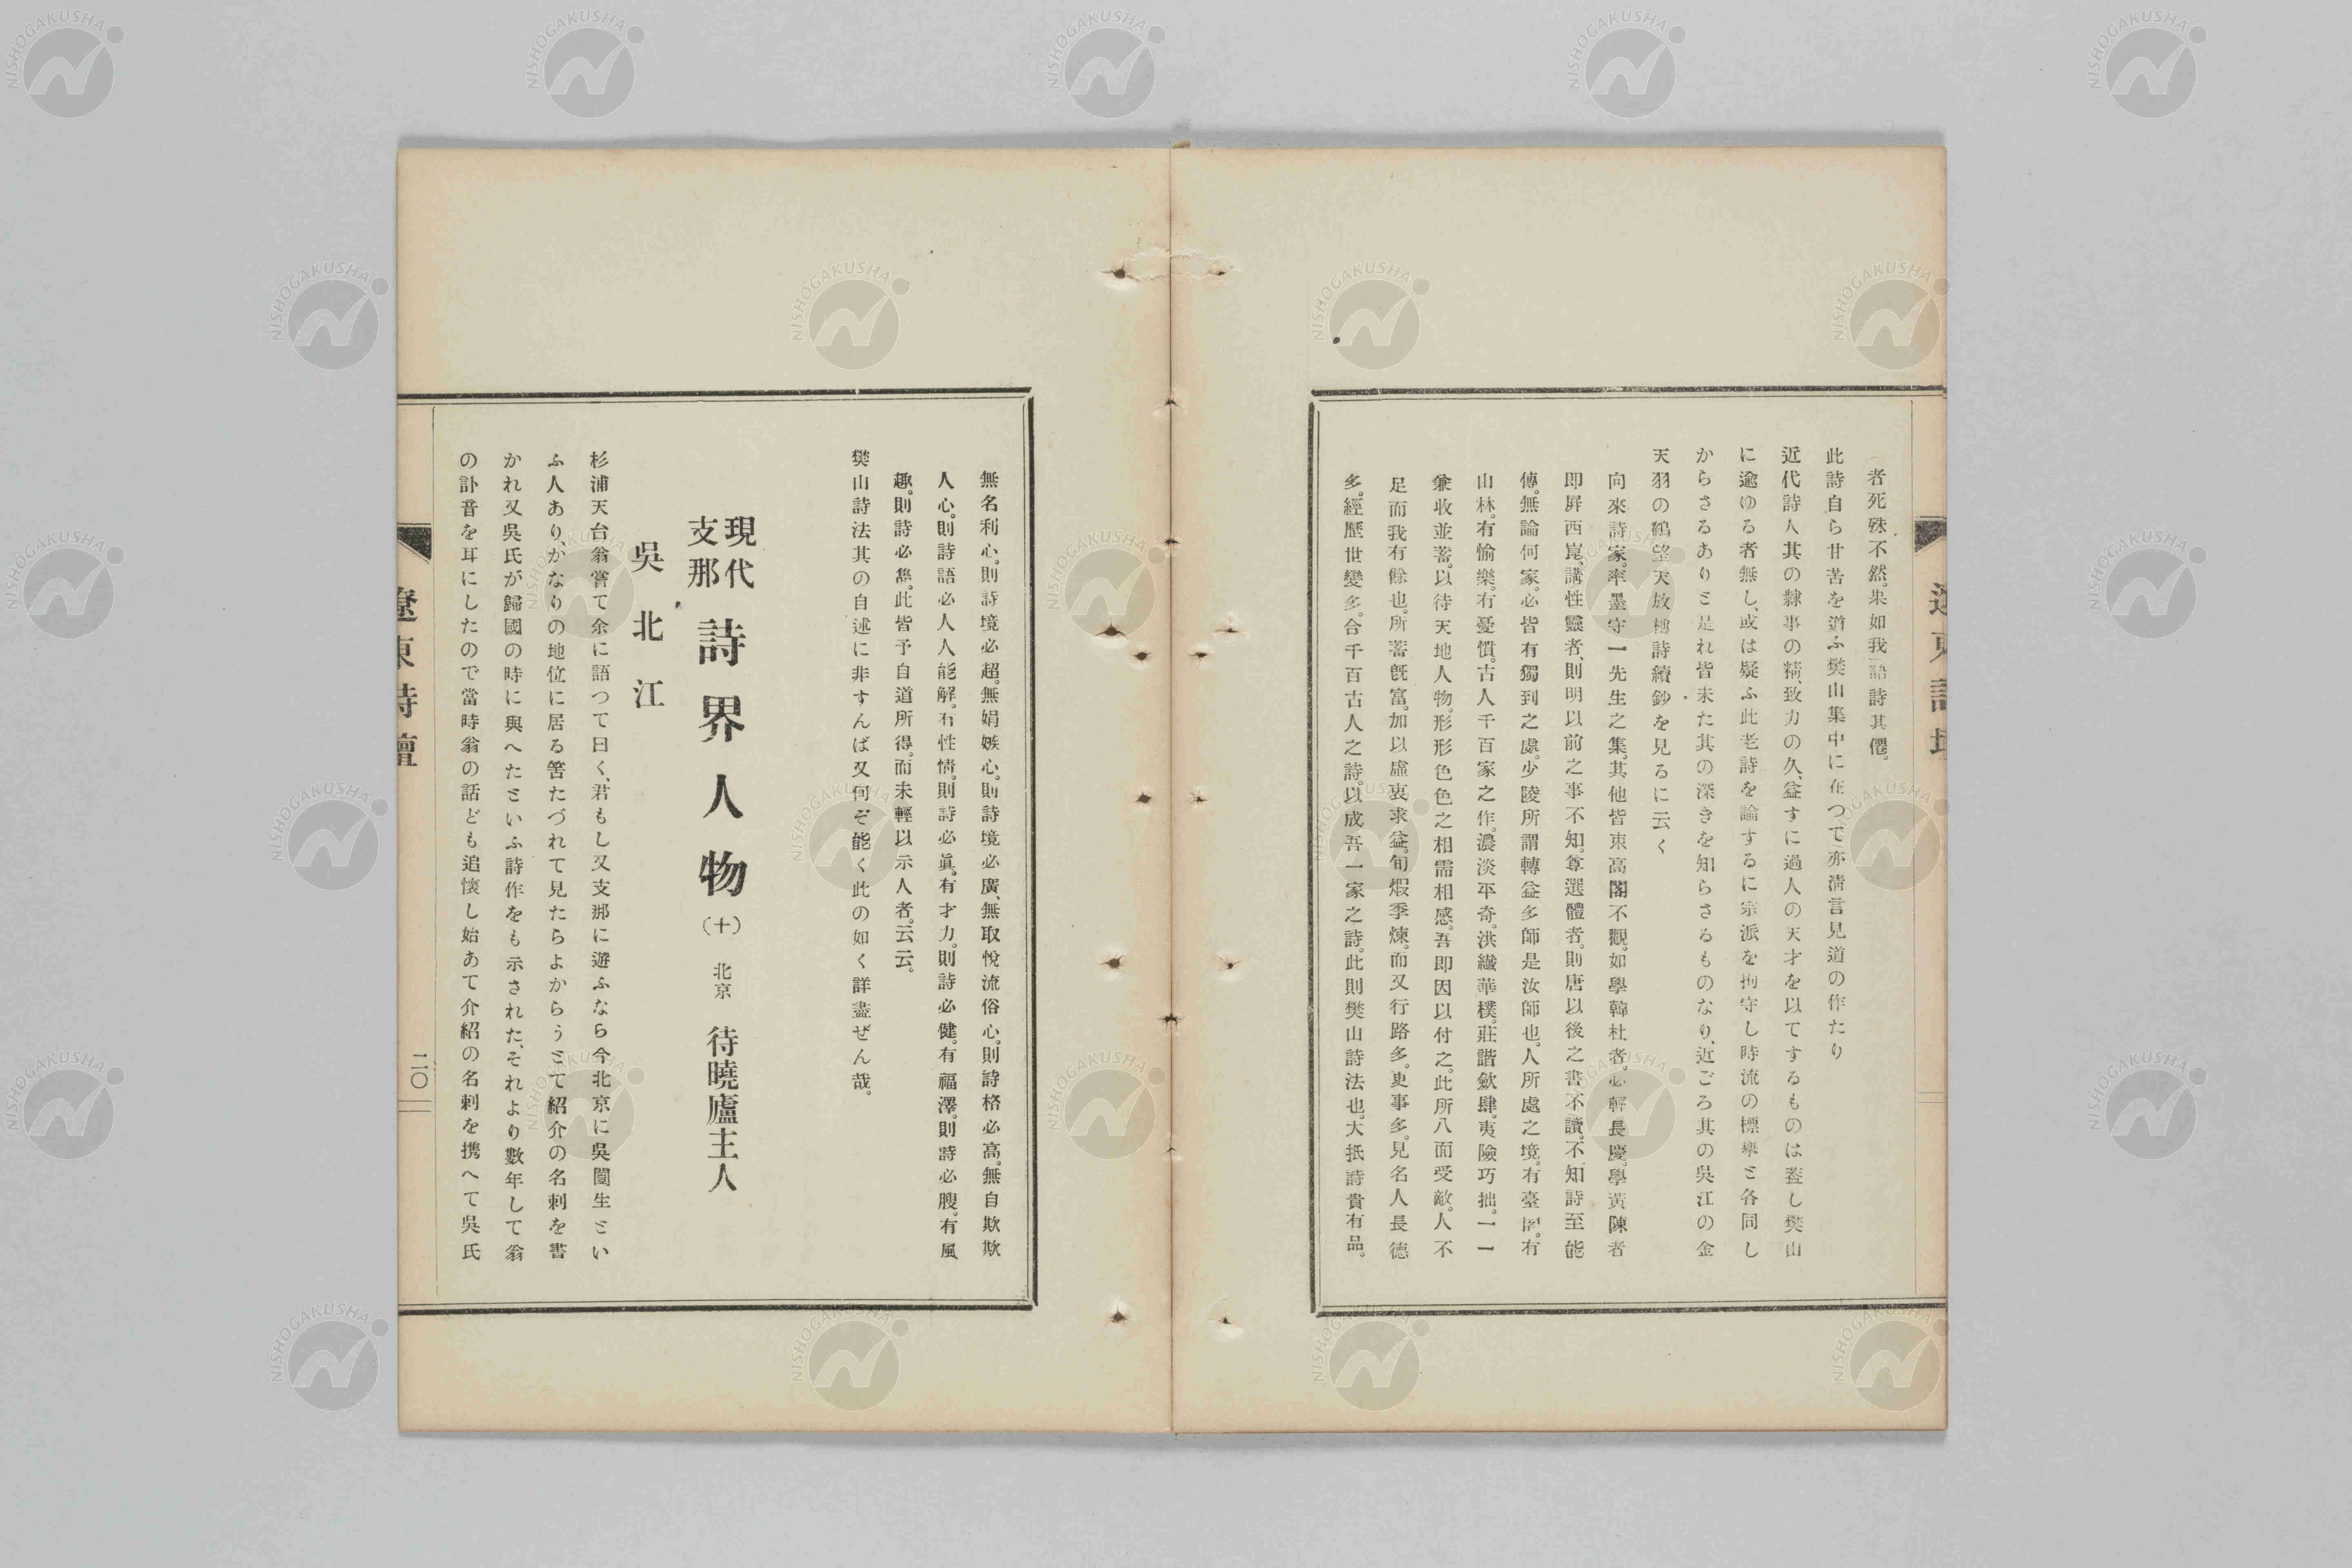 者死殊不然。果如我語詩其僊。
此詩自ら甘苦を道ふ樊山集中に在つて亦淸言見道の作たり
近代詩人其の隷事の精、致力の久、益すに過人の天才を以てするものは蓋し樊山
に逾ゆる者無し、或は疑ふ此老詩を論するに宗派を拘守し時流の標擧と各同し
からさるありと是れ皆未た其の深きを知らさるものなり、近ごろ其の吳江の金
天羽の鶴望天放樓詩續鈔を見るに云く
向來詩家。率墨守一先生之集。其他皆束高閣不觀。如學韓杜者。必輕長慶。學黃陳者
即屛西崑。講性靈者、則明以前之事不知。尊選體者。則唐以後之書不讀。不知詩至能
傳。無論何家。必皆有獨到之處。少陵所謂轉益多師是汝師也。人所處之境。有臺閣。有
山林。有愉樂。有憂憤。古人千百家之作。濃淡平奇。洪纖華樸。莊諧歛肆。夷險巧拙。一一
兼收並蓄。以待天地人物。形形色色之相需相感。吾即因以付之。此所八面受敵。人不
足而我有餘也。所蓄既富。加以虛衷求益。旬煆季煉。而又行路多。更事多。見名人長德
多。經歷世變多。合千百古人之詩。以成吾一家之詩。此則樊山詩法也。大抵詩貴有品。
無名利心。則詩境必超。無娟嫉心。則詩境必廣、無取悅流俗心。則詩格必高。無自欺欺
人心。則詩語必人人能解。有性情。則詩必眞。有才力。則詩必健。有福澤。則詩必腴。有風
趣。則詩必雋。此皆予自道所得。而未輕以示人者。云云。
樊山詩法其の自述に非すんば又何ぞ能く此の如く詳盡ぜん哉。
現代支那 詩界人物 (十) 北京 待曉廬主人
吳北江
杉浦天台翁嘗て余に語つて曰く、君もし又支那に遊ふなら今北京に吳闓生とい
ふ人あり、かなりの地位に居る筈たづれて見たらよからうとて紹介の名刺を書
かれ又吳氏が歸國の時に與へたといふ詩作をも示された、それより數年して翁
の訃音を耳にしたので當時翁の話ども追懷し始あて介紹の名刺を携へて吳氏
遼東詩壇
二〇